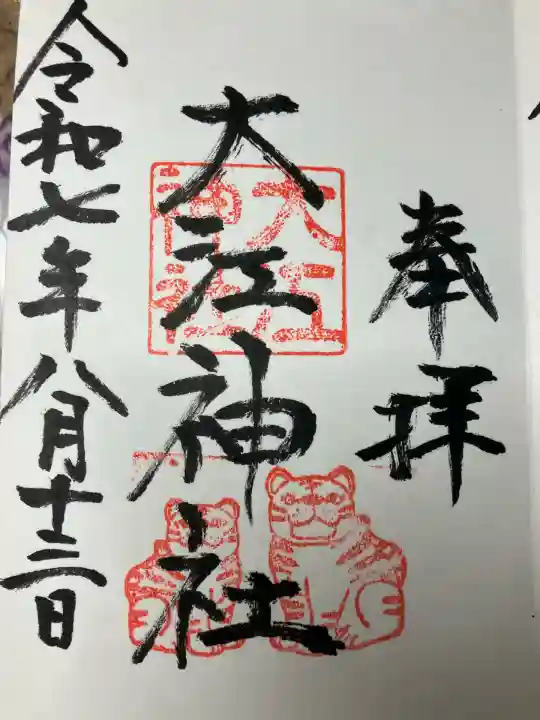 奉拝
大江神社
大江
神社
令和七年八月十三日